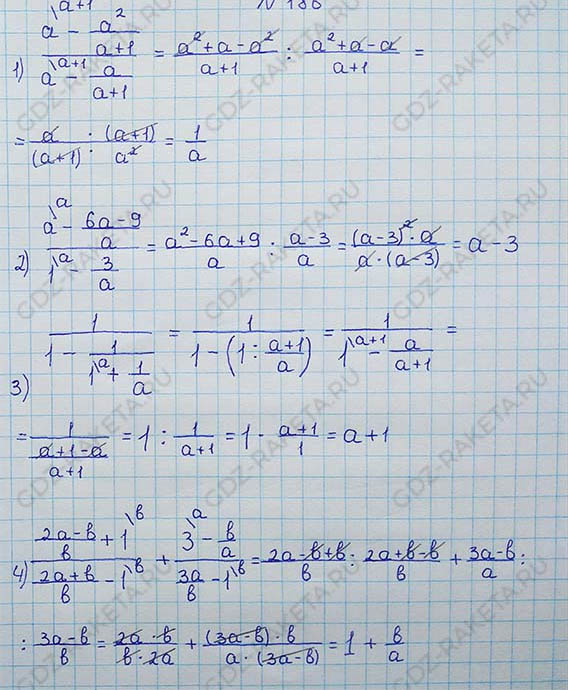 N 186
1) (a^{\a+1} - a²/(a+1)) / (a^{\a+1} - a/(a+1)) = (a²+a-a²)/(a+1) : (a²+a-a)/(a+1) =
= a/(a+1) · (a+1)/a² = 1/a
2) (a^{\a} - (6a-9)/a) / (1^{\a} - 3/a) = (a²-6a+9)/a : (a-3)/a = ((a-3)²·a)/(a·(a-3)) = a-3
3) 1/(1 - 1/(1^{\a} + 1/a)) = 1/(1-(1:(a+1)/a)) = 1/(1^{\a+1} - a/(a+1)) =
= 1/((a+1-a)/(a+1)) = 1 : 1/(a+1) = 1 · (a+1)/1 = a+1
4) ((2a-b)/b + 1^{\b}) / ((2a+b)/b - 1^{\b}) + (3^{\a} - b/a) / (3a/b - 1^{\b}) = (2a-b+b)/b : (2a+b-b)/b + (3a-b)/a :
: (3a-b)/b = (2a·b)/(b·2a) + ((3a-b)·b)/(a·(3a-b)) = 1 + b/a
GDZ-RAKETA.RU